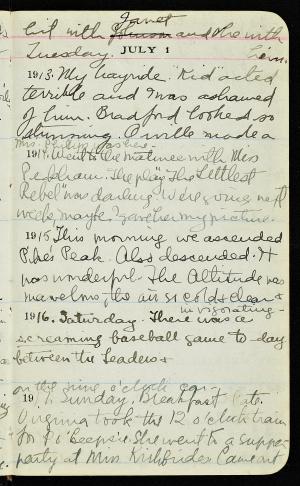 Janet
bid with Johnson and she with
Tuesday. JULY 1 him.
1913. My hayride. "Kid" acted
terrible and I was ashamed
of him. Bradford looked so
stunning. Orville made a
Mrs.
1914. Went to the matinee with Miss
Peckham. The play "The Littlest
Rebel" was darling. We're going next
week, maybe. Gave her my picture.
1915 This morning we ascended
Pikes Peak. Also descended. It
was wonderful. The Altitude was
marvelous, the air so cold & clear &
invigorating.
1916. Saturday. There was a
screaming baseball game to-day
between the Leaders &
on the nine o'clock car.
19 7. Sunday. Breakfast late.
Virginia took the 12 o'clock train
for Po'keepsie. She went to a supper
party at Miss Kirkbrides. Came out